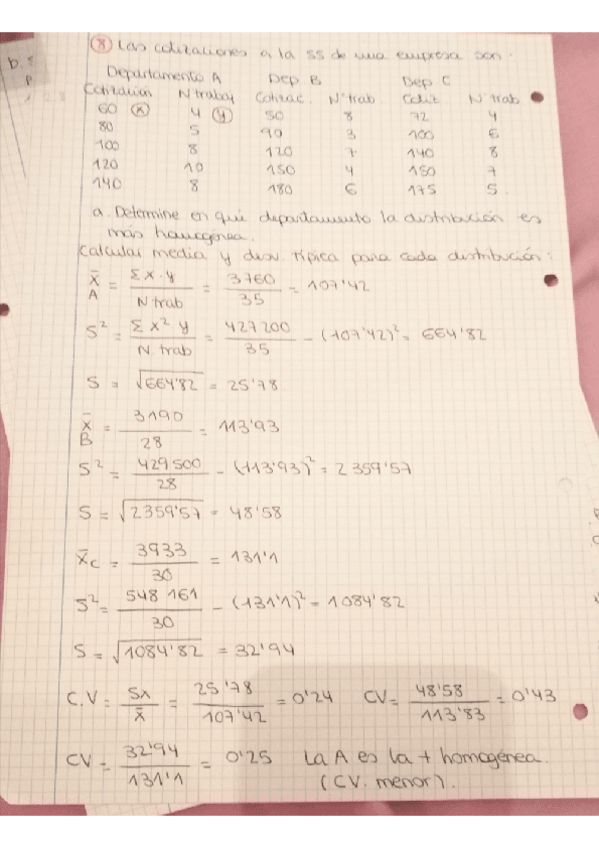 b. s
p
⑧ Las cotizaciones a la SS de una empresa son:
Departamento A Dep B Dep C
Cotización N trabaj Cotizac. Nº trab Cotit. Nº trab
60 (x) 4 (y) 50 8 72 4
80 5 90 3 100 6
100 8 120 7 140 8
120 10 150 4 150 7
140 8 180 6 175 5.
a. Determine en qué departamento la distribución es
más homogénea.
Calcular media y desv. típica para cada distribución:
x̄ A = Σ x·y / N trab = 3760 / 35 = 107'42
S² = Σ x² y / N. trab = 427200 / 35 - (107'42)² = 664'82
S = √664'82 = 25'78
x̄ B = 3190 / 28 = 113'93
S² = 429500 / 28 - (113'93)² = 2359'57
S = √2359'57 = 48'58
x̄c = 3933 / 30 = 131'1
S² = 548 161 / 30 - (131'1)² = 1084'82
S = √1084'82 = 32'94
C.V = Sx / x̄ = 25'78 / 107'42 = 0'24 CV = 48'58 / 113'83 = 0'43
CV = 32'94 / 131'1 = 0'25 La A es la + homogénea.
(CV. menor).